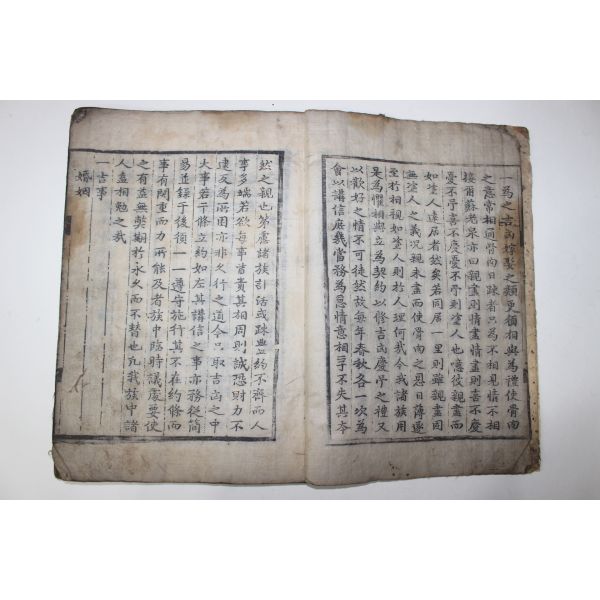 一爲之吉凶嫁娶之類更須相與爲禮使骨肉
之意常相通骨肉日踈者只爲不相見情不相
接爾蘇老泉亦曰親盡則情盡情盡則喜不慶
憂不弔喜不慶憂不弔則塗人也噫彼親盡而
如塗人遠居者然矣若同居一里則雖親盡固
無塗人之義況親未盡而使骨肉之恩日薄遂
至於相視如塗人則於人理何哉今我諸族用
是爲懼相與立爲契約以修吉凶慶弔之禮又
以歡好之情不可徒然故每年春秋各一次爲
會以講信庶幾當務爲恩情意相孚不失其本
然之親也第慮諸族居活或踈豊約不齊而人
事多端若欲每事皆責其相周則誠恐財力不
逮反爲所困亦非久行之道今只取吉凶之中
大事若干條立約如左其講信之事亦務從簡
易並錄于後須一一遵守施行其不在約條而
事有関重而力所能及者族中臨時議處要使
之有益無獘期於永久而不替也凢我族中諸
人盍相勉之哉
一吉事
婚姻